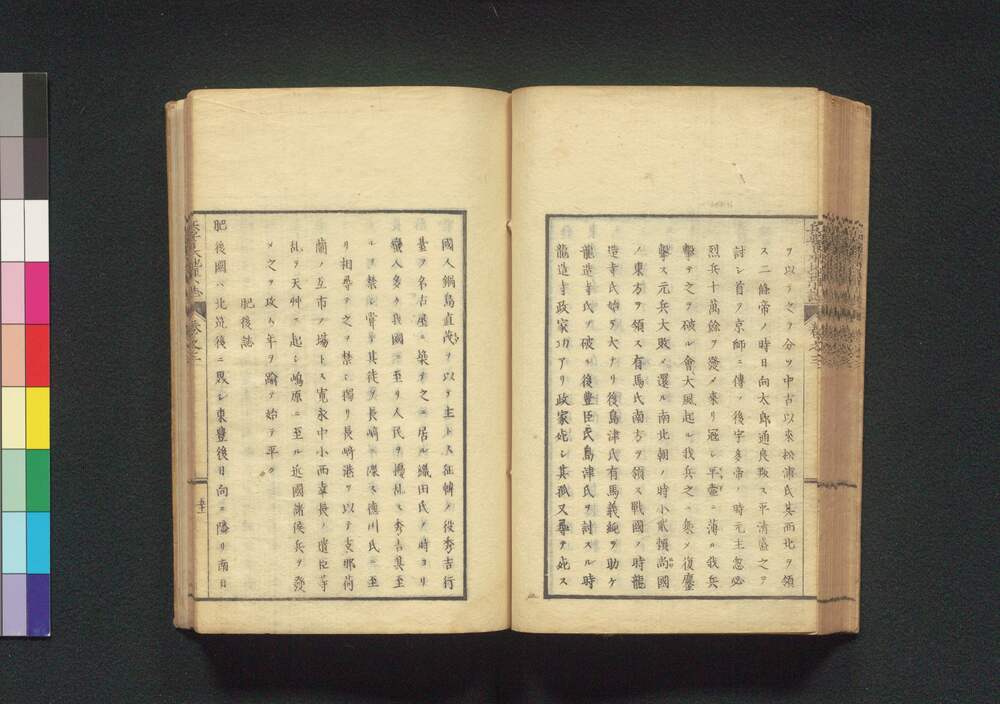 ヲ以テ之ヲ分ツ中古以來松浦氏其西北ヲ領
ス二條帝ノ時日向太郎通良叛ス平清盛之ヲ
討シ首ヲ京師ニ傳フ後宇多帝ノ時元主忽必
烈兵十萬餘ヲ發メ來リ冦シ平壷ニ薄ル我兵
擊テ之ヲ破ル會大風起ル我兵之ニ乗メ復鏖
擊ス元兵大敗メ還ル南北朝ノ時小貳頼尚國
ノ東方ヲ領ス有馬氏南方ヲ領ス戰國ノ時龍
造寺氏始テ大ナリ後島津氏有馬義純ヲ助ケ
龍造寺氏ヲ破ル後豊臣氏島津氏ヲ討スル時
龍造寺政家功アリ政家死シ其孤又尋テ死ス
國人鍋島直茂ヲ以テ主トス征韓ノ役秀吉行
臺ヲ名古屋ニ築テ之ニ居ル織田氏ノ時ヨリ
蠻人多ク我國ニ至リ人民ヲ擾乱ス秀吉其至
ルヲ禁シ嘗テ其徒ヲ長﨑ニ磔ス徳川氏ニ至
リ相尋テ之ヲ禁シ獨リ長崎港ヲ以テ支那荷
蘭ノ互市ノ場トス寛永中小西幸長ノ遺臣等
乱ヲ天艸ニ起シ嶋原ニ至ル近國諸侯兵ヲ發
メ之ヲ攻ム年ヲ踰テ始テ平ク
肥後誌
肥後國ハ北筑後ニ界シ東豊後日向ニ隣リ南日
卷之三